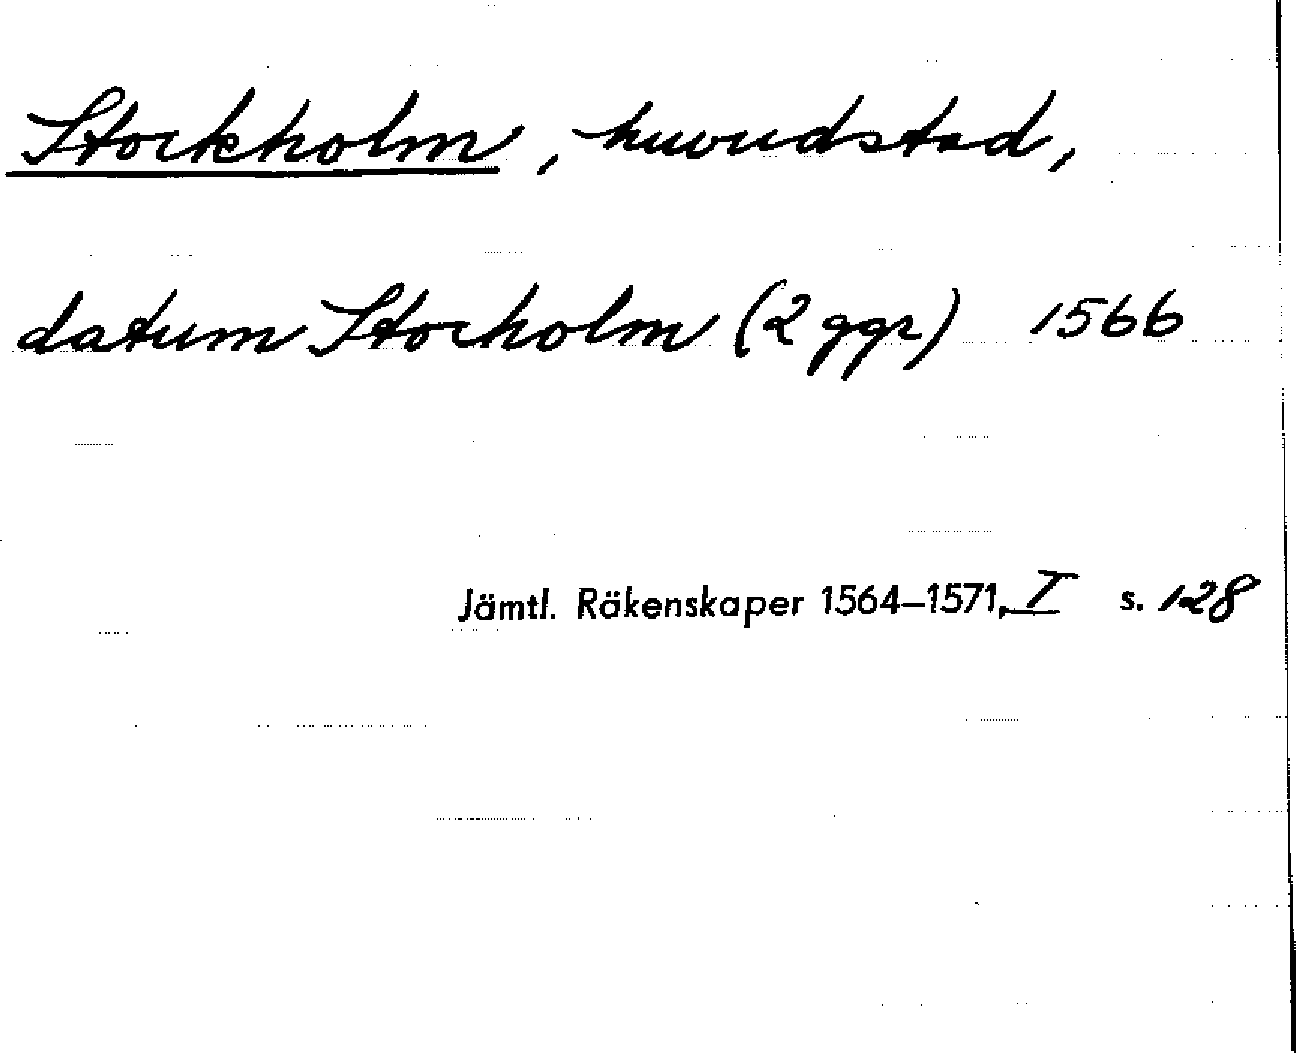 Stockholm, huvudstad,
datum Stocholm (2 ggr) 1566
Jämtl. Räkenskaper 1564–1571, I s. 128